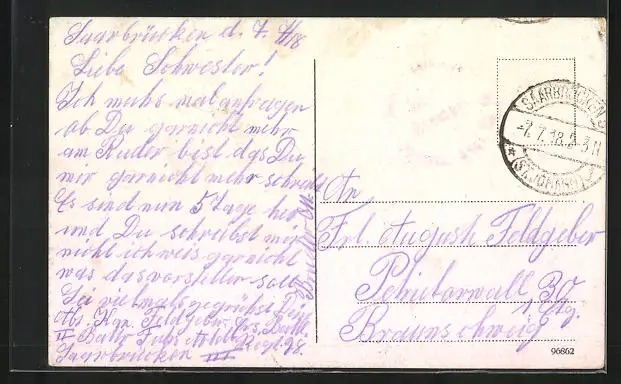 Saarbrücken d. 7. 7/18
Liebe Schwester!
Ich muhs mal anfragen
ob Du garnicht mehr
am Ruder bist das Du
mir garnicht mehr schreibst
Es sind nun 5 Tage her
und Du schreibst mir
nicht ich weis garnicht
was das vorstellen soll
Sei vielmals gegrüßt Dein
Bruder
Abs. Kan. Feldgeber
II Batr Fuhs Artill Regt. 98.
Saarbrücken III
An
Frl. Auguste Feldgeber
Petristorwall 30
1 Etg.
Braunschweig
SAARBRÜCKEN 3
-7.7.18. 2-3 N
(ST. JOHANN)
96862